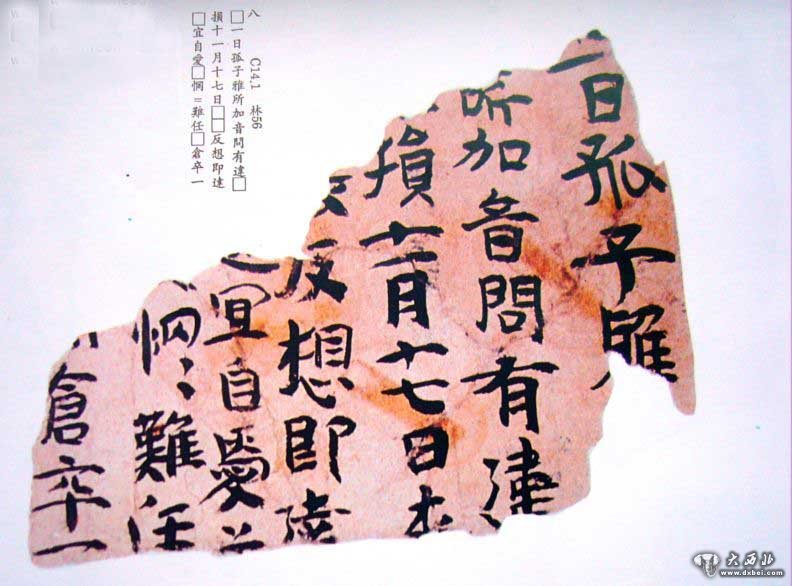 八 C14.1 林56
□一日孤子雅所加音問有違□
損十一月十七日□□反想即達
□宜自愛□惘＝難任□倉卒一
一日孤子雅
所加音問有
損十一月十七日
反想即
宜自愛
惘〻難任
倉卒一
大西北
www.dxbei.com